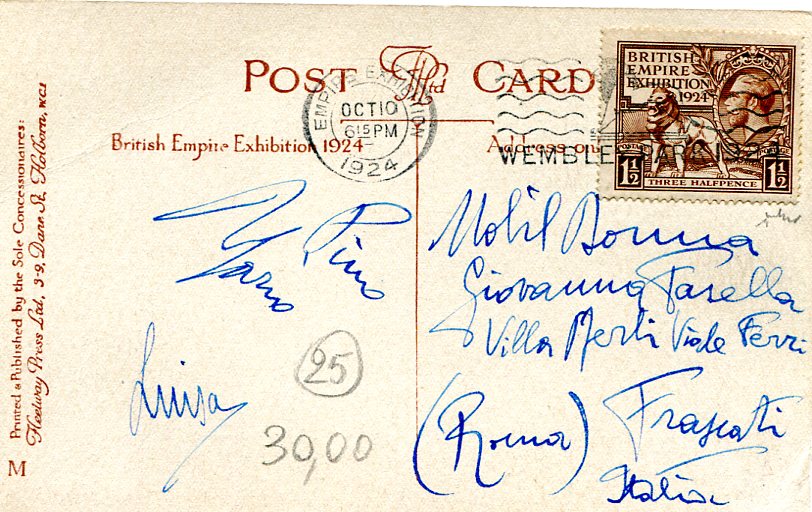 POST CARD
British Empire Exhibition 1924
Address on
EMPIRE EXHIBITION
OCT 10
6 15 PM
1924
WEMBLEY PARK 1924
BRITISH
EMPIRE
EXHIBITION
1924
POSTAGE
1½ 1½
THREE HALFPENCE
Pino
Mario
Luisa
25
30,00
Nobil Donna
Giovanna Fasella
Villa Merli Viale Ferri
(Roma) Frascati
Italia
Printed & Published by the Sole Concessionaires:
Fleetway Press Ltd, 3-9, Dane St, Holborn, WC1
M